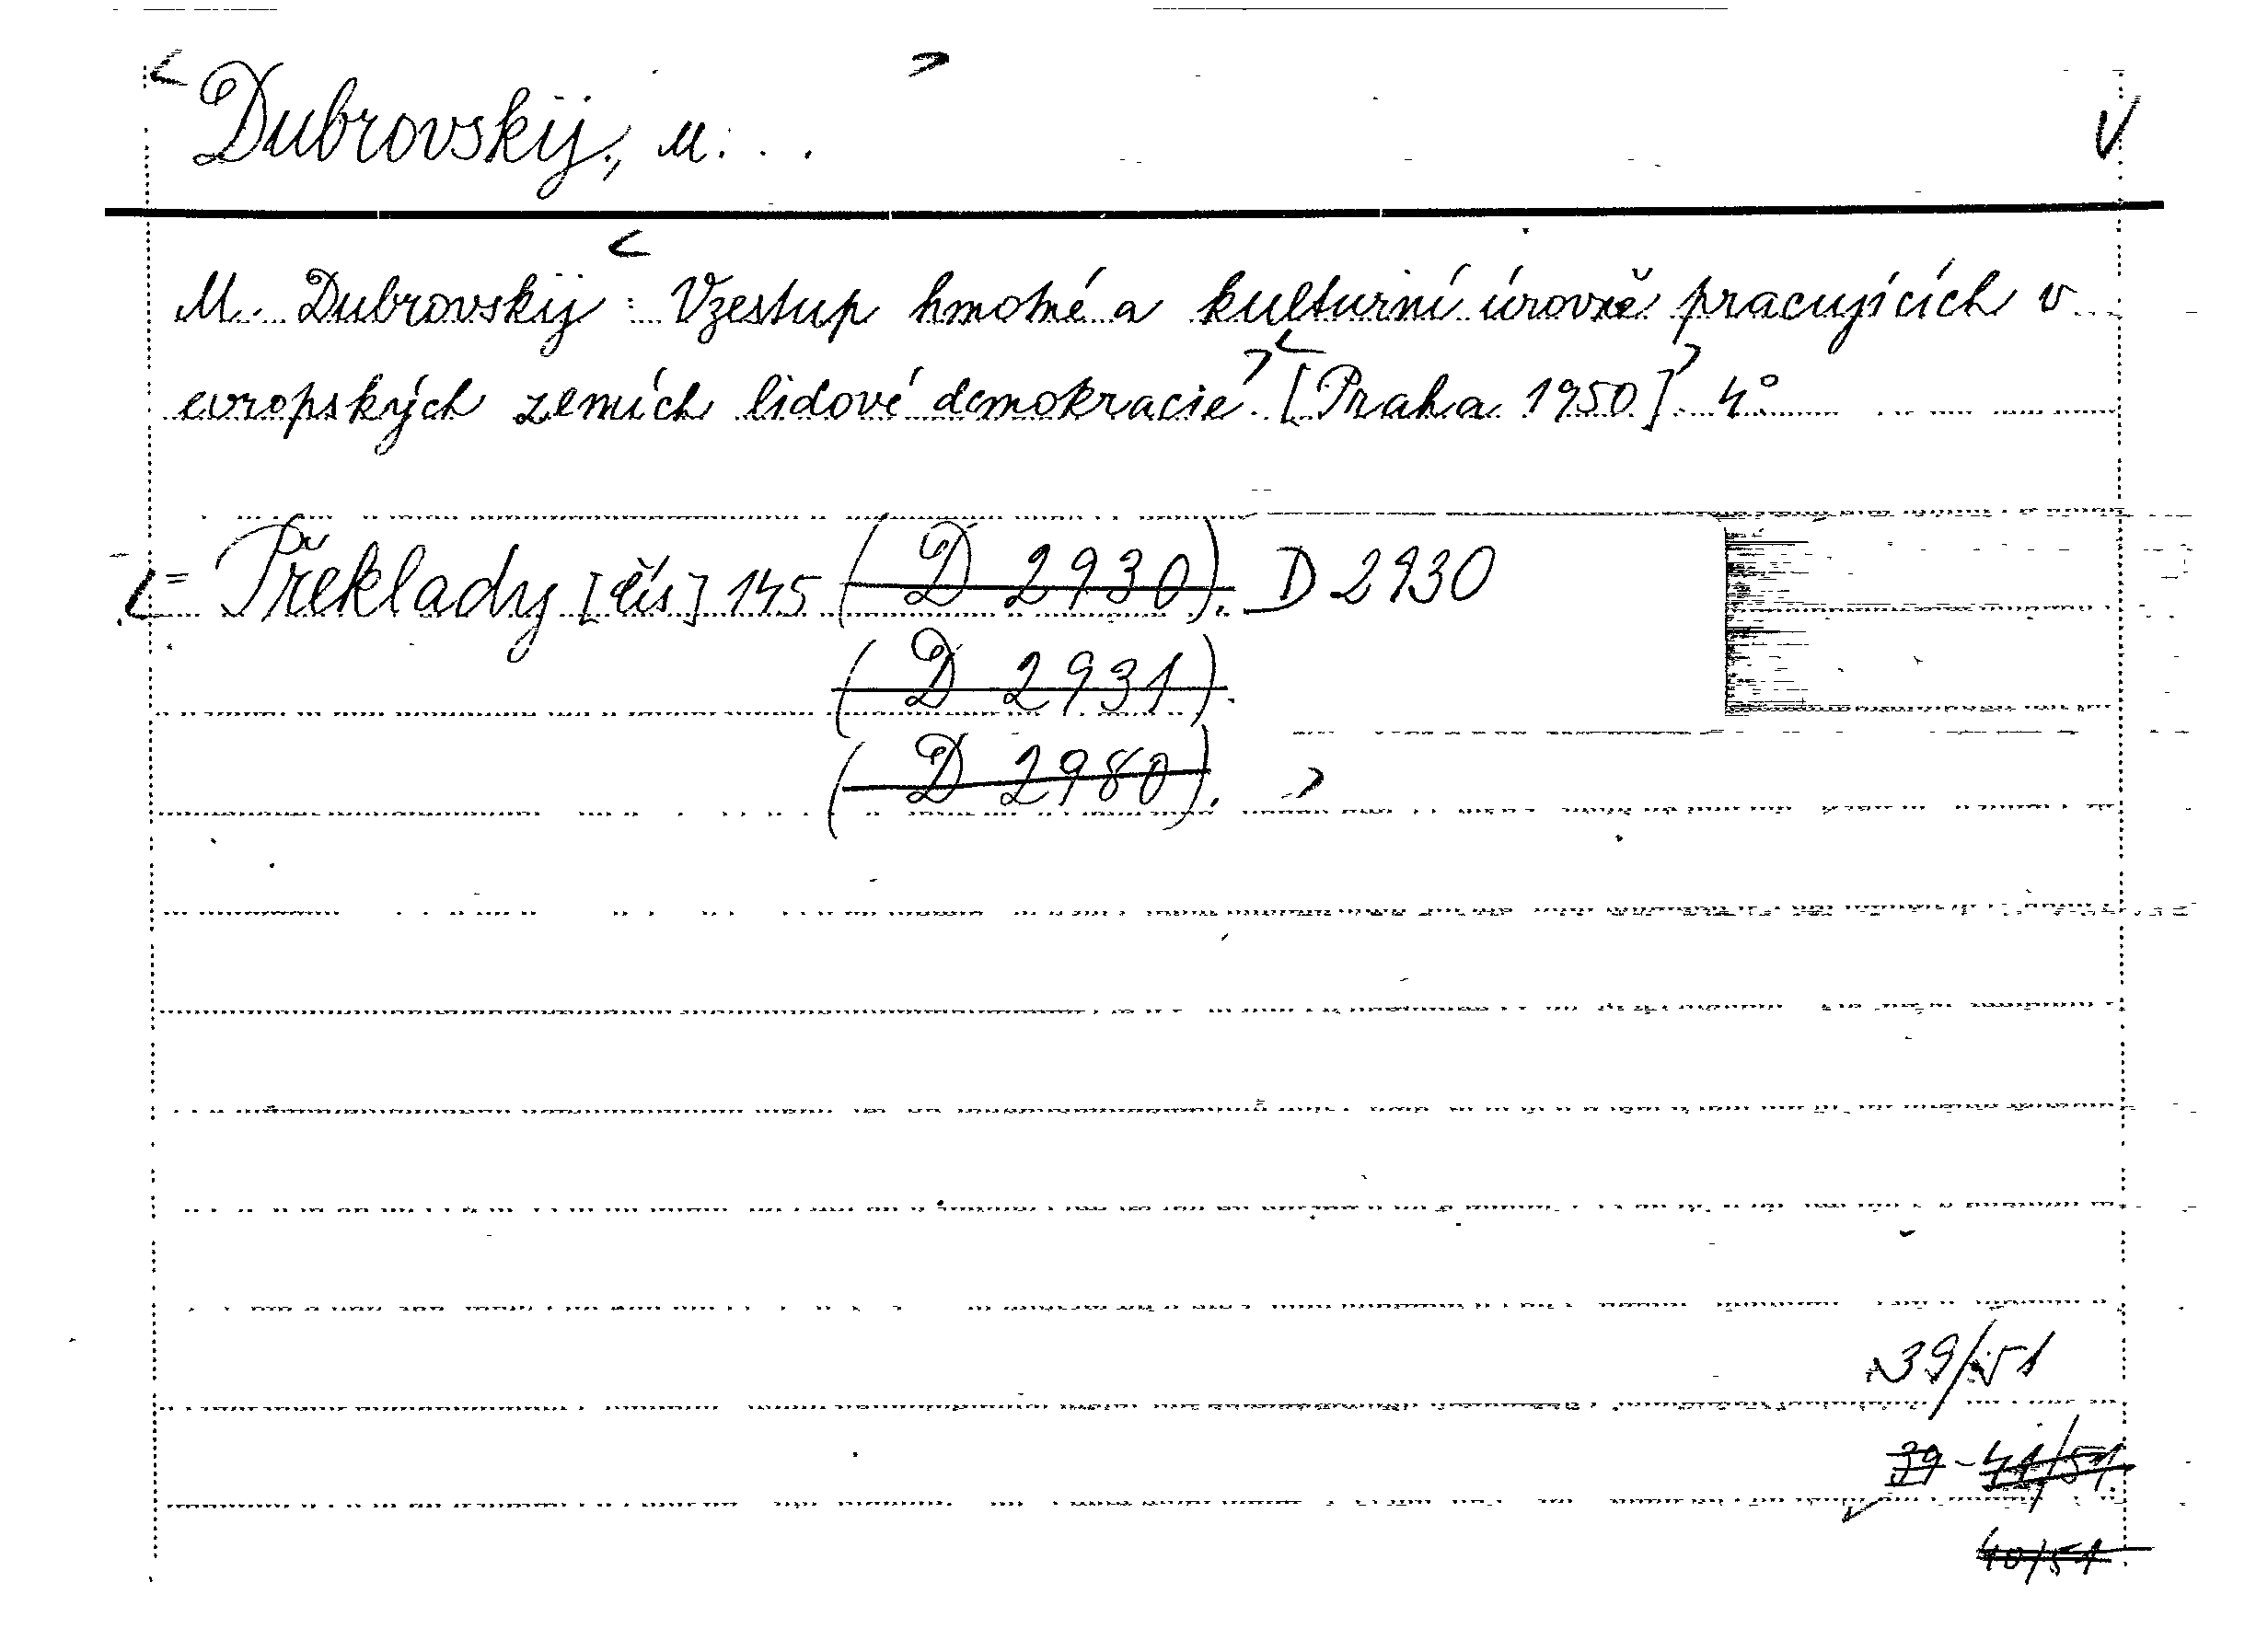 < Dubrovskij, M. . . > V
M. Dubrovskij : < Vzestup hmotné a kulturní úrovně pracujících v
evropských zemích lidové demokracie. > < [Praha 1950] > 4°
< = Překlady [čís] 145 ( D 2930). D 2930
( D 2931).
( D 2980). >
39/51
39 - 41/51
40/51